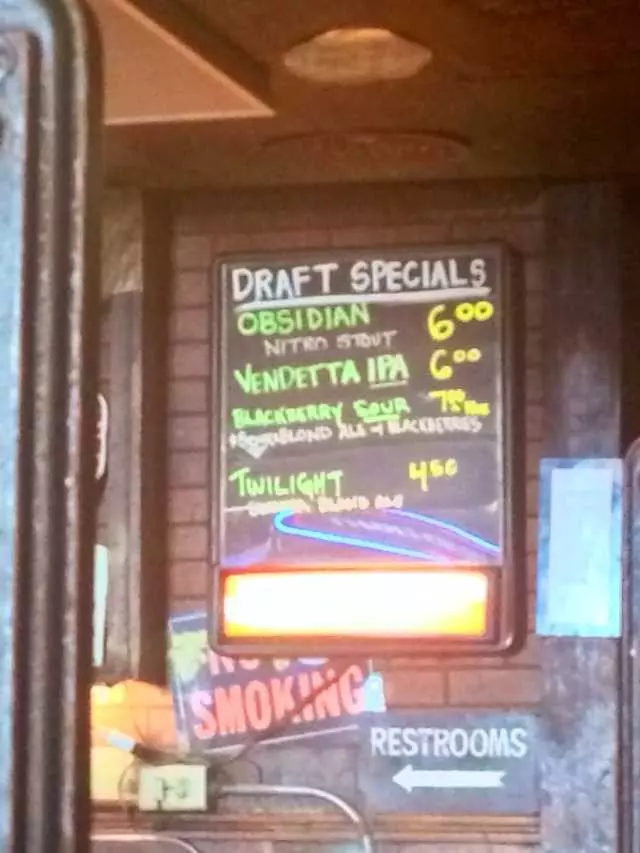 DRAFT SPECIALS
OBSIDIAN 6⁰⁰
NITRO STOUT
VENDETTA IPA 6⁰⁰
BLACKBERRY SOUR
BLOND ALE + BLACKBERRIES
TWILIGHT 4⁵⁰
BLOND ALE
SMOKING
RESTROOMS